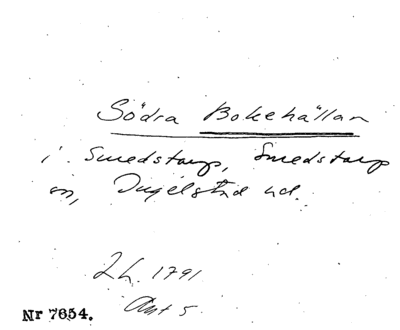 Södra Bokehällan
i Smedstorp, Smedstorp
sn, Ingelstad hd.
Lh. 1791
Akt 5
Nr 7654.